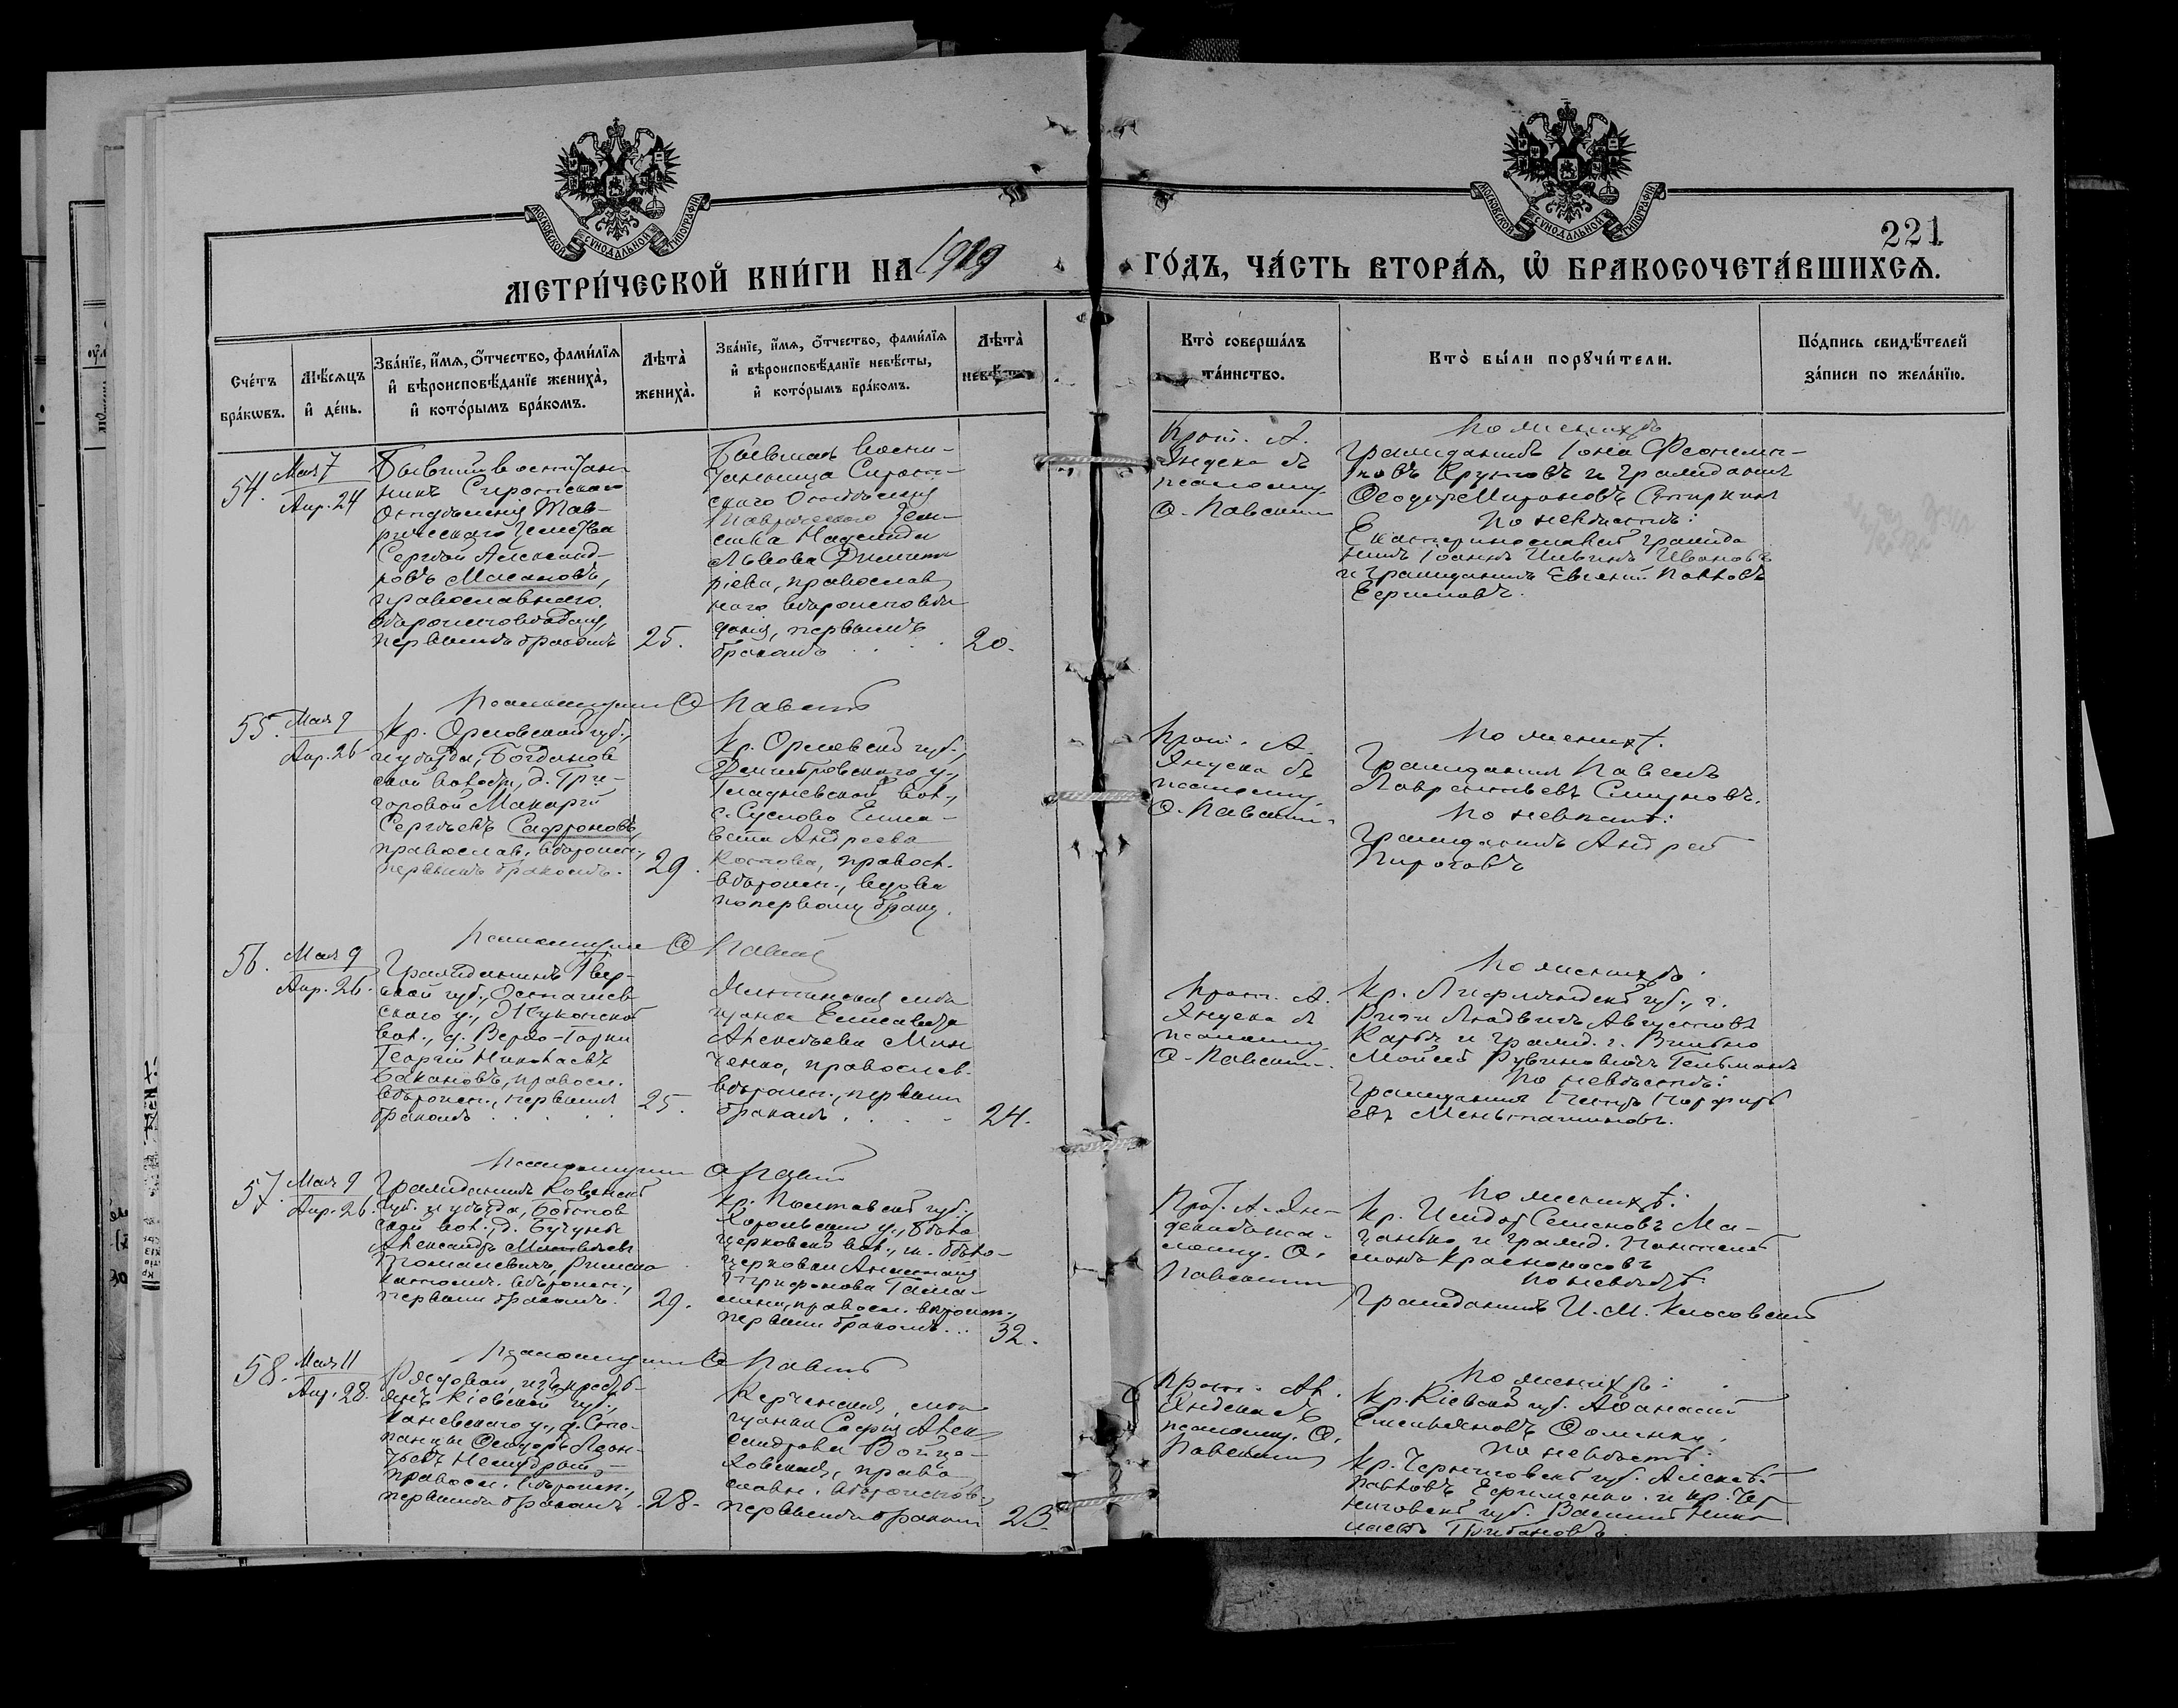 МОСКОВСКОЙ СУНОДАЛЬНОЙ ТИПОГРАФІИ
МОСКОВСКОЙ СУНОДАЛЬНОЙ ТИПОГРАФІИ
221
МЕТРИ́ЧЕСКОЙ КНИ́ГИ НА 1919 ГО́ДЪ, ЧА́СТЬ ВТОРА́Я, Ѡ҆ БРАКОСОЧЕТА́ВШИХСѦ.
Сче́тъ бра́кѡвъ.
Мѣ́сяцъ и҆ де́нь.
Зва́нїе, и҆́мя, ѻ҆́тчество, фами́лїя и҆ вѣроисповѣ́данїе жениха̀, и҆ кото́рымъ бра́комъ.
Лѣта̀ жениха̀.
Зва́нїе, и҆́мя, ѻ҆́тчество, фами́лїя и҆ вѣроисповѣ́данїе невѣ́сты, и҆ кото́рымъ бра́комъ.
Лѣта̀ невѣ́сты
Кто̀ соверша́лъ та́инство.
Кто̀ бы́ли порꙋчи́тели.
По́дпись свидѣ́телей за́писи по жела́нїю.
54.
Мая 7
Апр. 24
Бывшій воспитан
никъ Сиротскаго
Отдѣленія Тав-
рическаго Земства
Сергѣй Александ-
ровъ Масановъ,
православнаго
вѣроисповѣданія,
первымъ бракомъ
25.
Бывшая воспи-
танница Сирот-
скаго Отдѣленія
Таврическаго Зем
ства Надежда
Львова Димит
ріева, православ
наго вѣроисповѣ
данія, первымъ
бракомъ
20.
Прот. А.
Яндека съ
псаломщ.
Ѳ. Павскимъ
По женихѣ
Гражданинъ Іона Феоктист-
овъ Крутовъ и гражданинъ
Ѳеодоръ Мироновъ
По невѣстѣ:
Екатеринославскій гражда
нинъ Іоаннъ Ивановъ
и гражданинъ Евгеній Павловъ
Ефимовъ.
Псаломщикъ Ѳ Павскій
55.
Мая 9
Апр. 26
Кр. Орловской губ.,
и уѣзда, Богданов
ской волости, д. Гри-
горовой Макарій
Сергѣевъ Сафроновъ,
православ. вѣроисп.,
первымъ бракомъ.
29.
Кр. Орловской губ.,
Дмитровскаго у.,
Гладневской вол.,
с. Суслово Елиса-
вета Андреева
Котова, правосл.
вѣроисп., вдова
по первому браку.
Прот. А.
Яндека съ
псаломщ.
Ѳ. Павским.
По женихѣ.
Гражданинъ Павелъ
Лаврентьевъ Смирновъ.
По невѣстѣ:
Гражданинъ Андрей
Пироговъ
Псаломщикъ Ѳ Павскій
56.
Мая 9
Апр. 26.
Гражданинъ Твер-
ской губ., Осташков
скаго у.,
вол., д. Верхо-Горки
Георгій Николаевъ
Бакановъ, правосл.
вѣроисп., первымъ
бракомъ
25.
Ялтинская мѣ
щанка Елисавета
Алексѣева Мин
ченко, православ.
вѣроисп., первымъ
бракомъ
24.
Прот. А.
Яндека съ
псаломщ.
Ѳ. Павским.
По женихѣ.
Кр. Лифляндской губ., г.
Риги Людвигъ Августовъ
и гражд. г. Вильно
Моисей Рувиновичъ Гельманъ
По невѣстѣ:
Гражданинъ Петръ Порфирь
евъ Меньташиновъ.
Псаломщикъ Ѳ Павскій
57.
Мая 9
Апр. 26.
Гражданинъ Ковенской
губ. и уѣзда,
ской вол., д.
Александръ
римско
католич. вѣроисп.,
первымъ бракомъ.
29.
Кр. Полтавской губ.,
Хорольскаго у., Бѣло
церковской вол., м. Бѣло-
церковки Анастасія
Трифонова
правосл. вѣроисп.,
первымъ бракомъ...
32.
Прот. А. Ян-
дека съ пса-
ломщ. Ѳ.
Павскимъ
По женихѣ:
Кр. Исидоръ Семеновъ Ма-
цанко и гражд. Пантелей
монъ Красноносовъ
По невѣстѣ.
Гражданинъ И. М. Клосовскій
Псаломщикъ Ѳ Павскій
58.
Мая 11
Апр. 28.
Рядовой, изъ кресть-
янъ Кіевской губ.,
Каневскаго у., д. Сте-
панцы Ѳеодоръ
правосл. вѣроисп.,
первымъ бракомъ
28.
Керченская мѣ
щанка Софія Алек
сандрова Войце-
ховская, право
славн. вѣроисповѣд.,
первымъ бракомъ
23.
Прот. Ал.
Яндека съ
псаломщ. Ѳ.
Павскимъ
По женихѣ:
Кр. Кіевской губ. Аѳанасій
Емельяновъ Ѳоменко.
По невѣстѣ:
Кр. Черниговской губ. Алексѣй
Павловъ Ефименко и кр. Чер
ниговской губ. Василій Нико
лаевъ